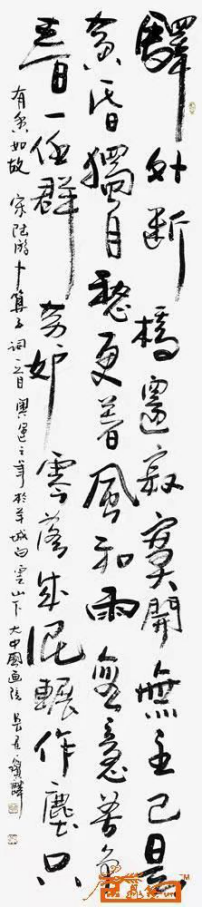 驛外斷橋邊寂寞開無主已是
黃昏獨自愁更著風和雨無意苦爭
春一任群芳妒零落成泥輾作塵只
有香如故 宋陸游卜算子詞一首 奧運之年於羊城白雲山下 大中國畫院